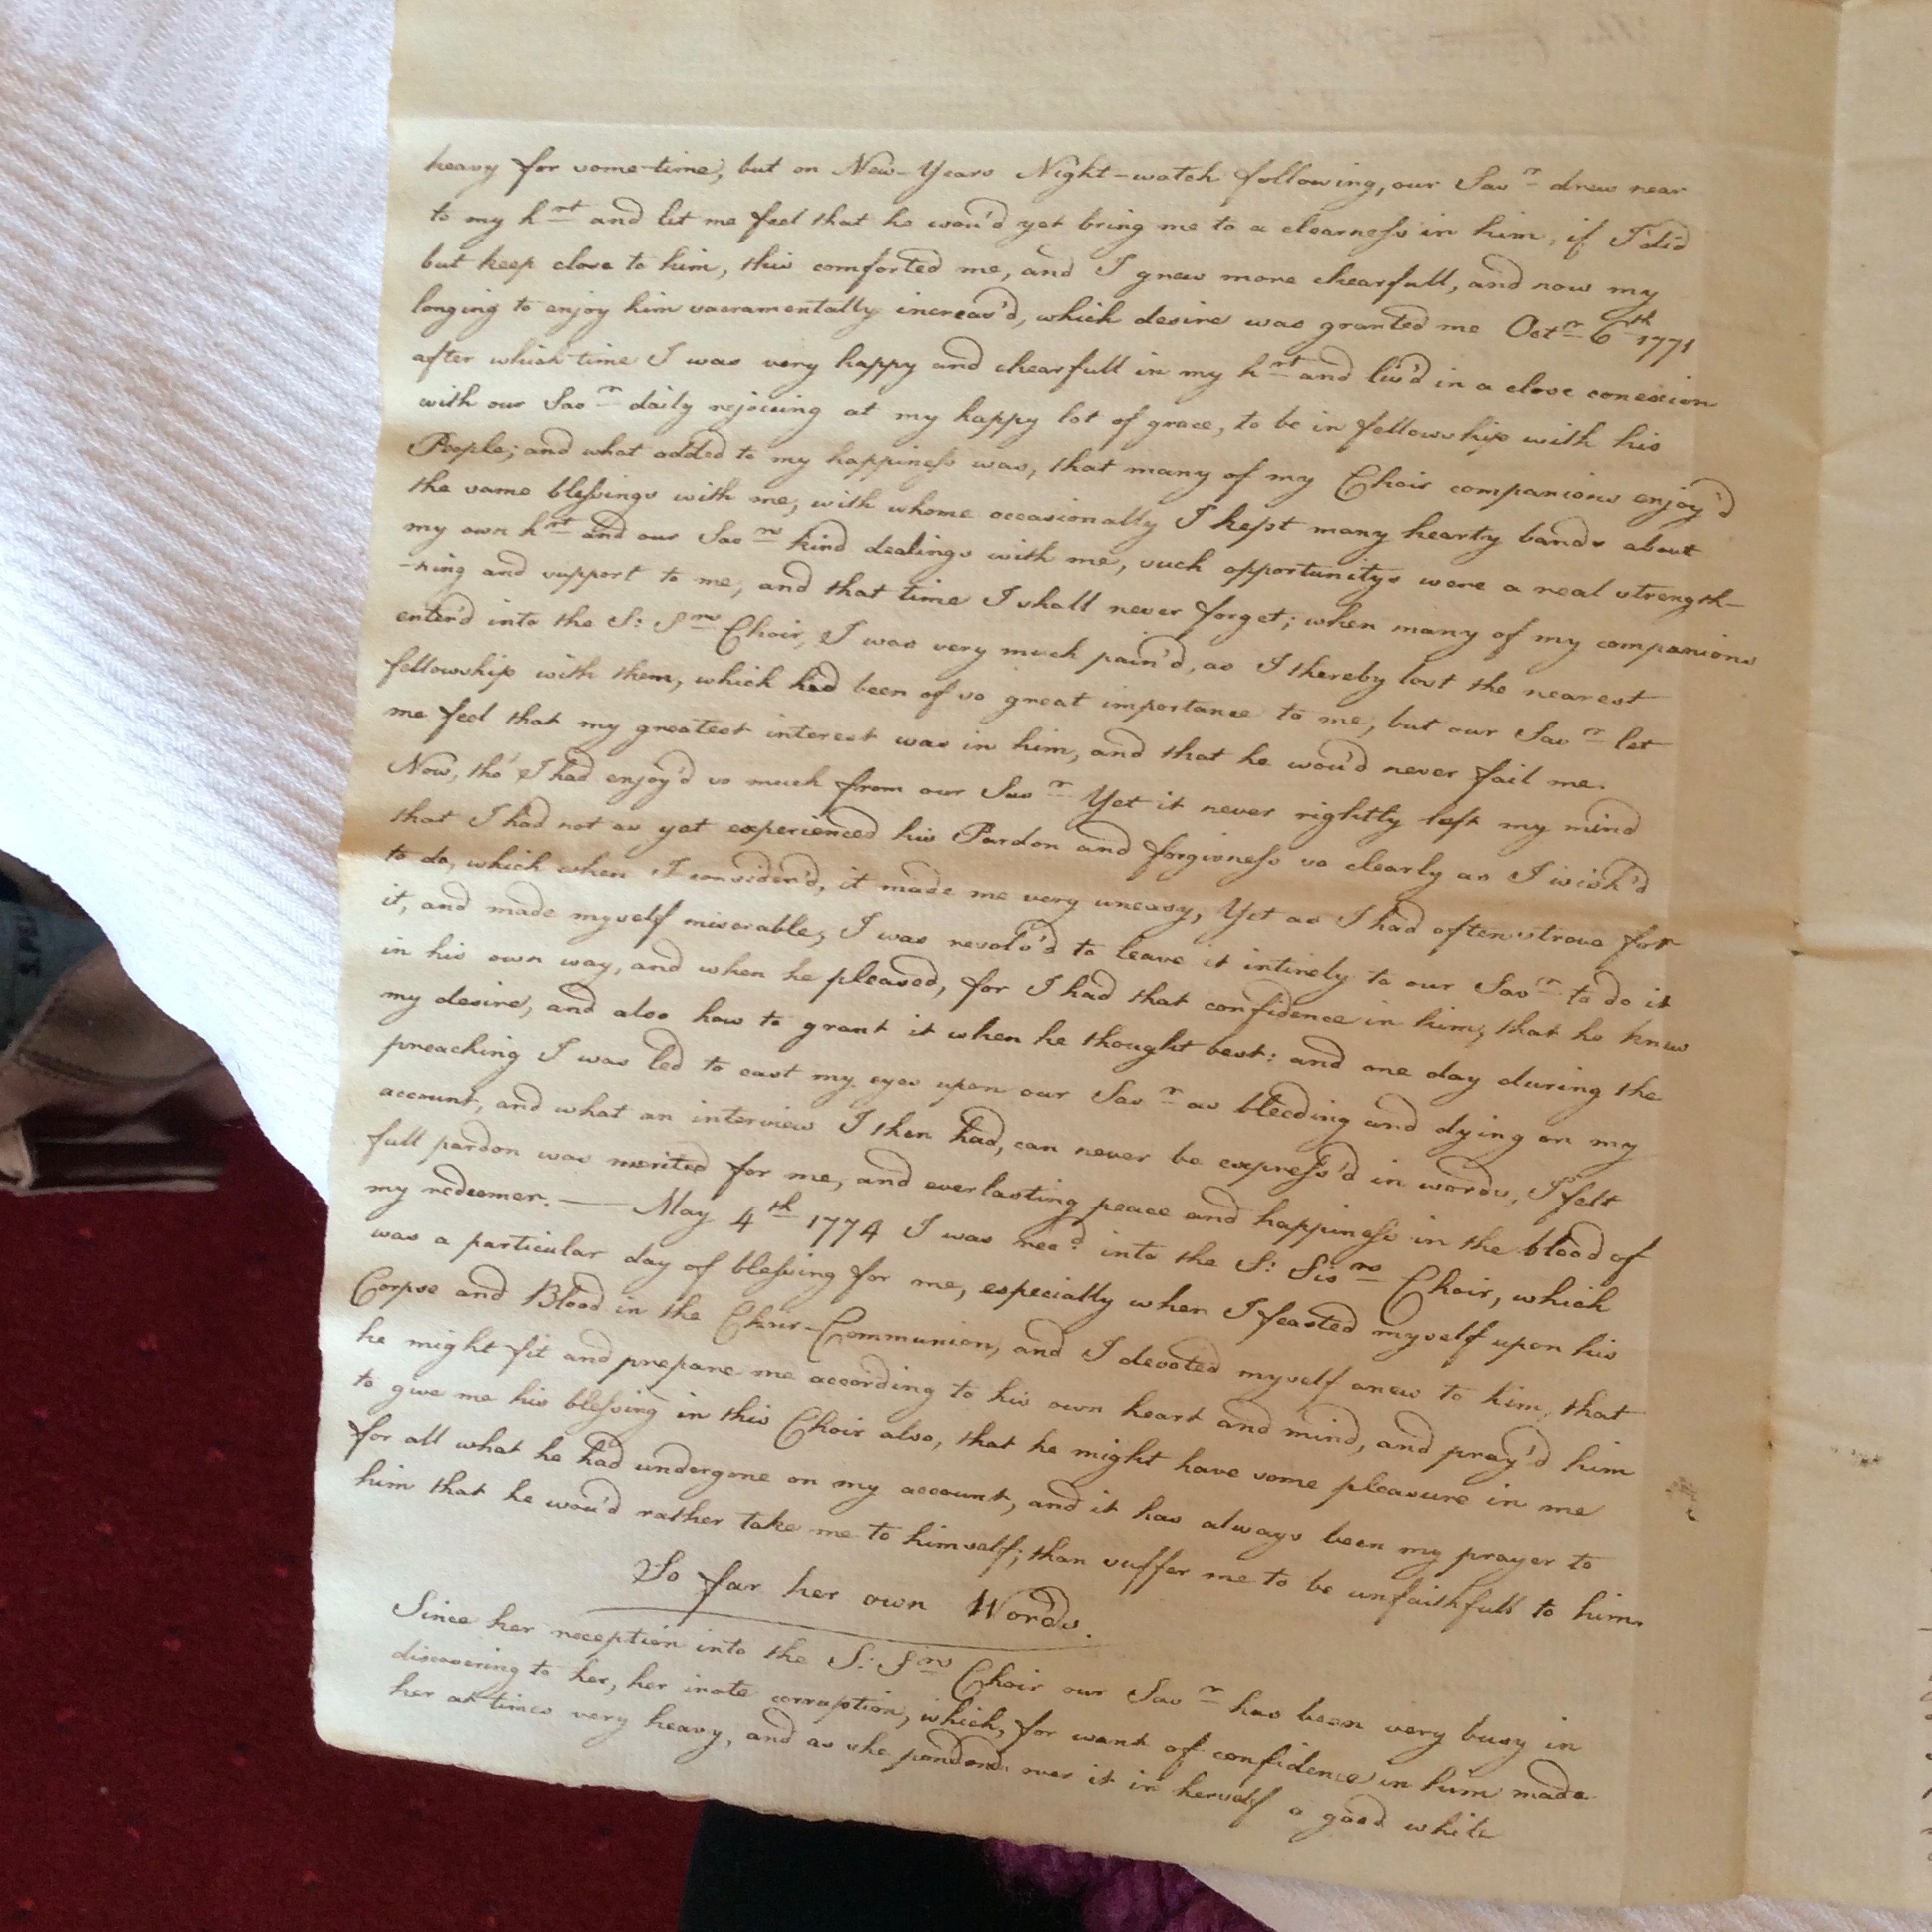 heavy for some-time, but on New-Years Night-watch following, our Savr drew near
to my hrt and let me feel that he wou'd yet bring me to a clearness in him, if I did
but keep close to him, this comforted me, and I grew more chearfull, and now my
longing to enjoy him sacramentally increas'd, which desire was granted me Octr 6th 1771
after which time I was very happy and chearfull in my hrt and liv'd in a close conexion
with our Savr daily rejoicing at my happy lot of grace, to be in fellowship with his
People; and what added to my happiness was, that many of my Choir companions enjoy'd
the same blessings with me, with whome occasionally I kept many hearty bands about
my own hrt and our Savrs kind dealings with me, such opportunitys were a real strength-
-ning and support to me, and that time I shall never forget; when many of my companions
enter'd into the S: Srs Choir, I was very much pain'd, as I thereby lost the nearest
fellowship with them, which had been of so great importance to me, but our Savr let
me feel that my greatest interest was in him, and that he wou'd never fail me.
Now, tho' I had enjoy'd so much from our Savr Yet it never rightly left my mind
that I had not as yet experienced his Pardon and forgivness so clearly as I wish'd
to do, which when I consider'd, it made me very uneasy, Yet as I had often strove for
it, and made myself miserable, I was resolv'd to leave it intirely to our Savr to do it
in his own way, and when he pleased, for I had that confidence in him, that he knew
my desire, and also how to grant it when he thought best: and one day during the
preaching I was led to cast my eyes upon our Savr as bleeding and dying on my
account, and what an interview I then had, can never be express'd in words, I felt
full pardon was merited for me, and everlasting peace and happiness in the blood of
my redeemer. — May 4th 1774 I was recd into the S: Sisrs Choir, which
was a particular day of blessing for me, especially when I feasted myself upon his
Corpse and Blood in the Choir-Communion, and I devoted myself anew to him, that
he might fit and prepare me according to his own heart and mind, and pray'd him
to give me his blessing in this Choir also, that he might have some pleasure in me
for all what he had undergone on my account, and it has always been my prayer to
him that he wou'd rather take me to himself; than suffer me to be unfaithfull to him.
So far her own Words.
Since her reception into the S: Srs Choir our Savr has been very busy in
discovering to her, her inate corruption, which, for want of confidence in him made
her at times very heavy, and as she ponderd over it in herself a good while